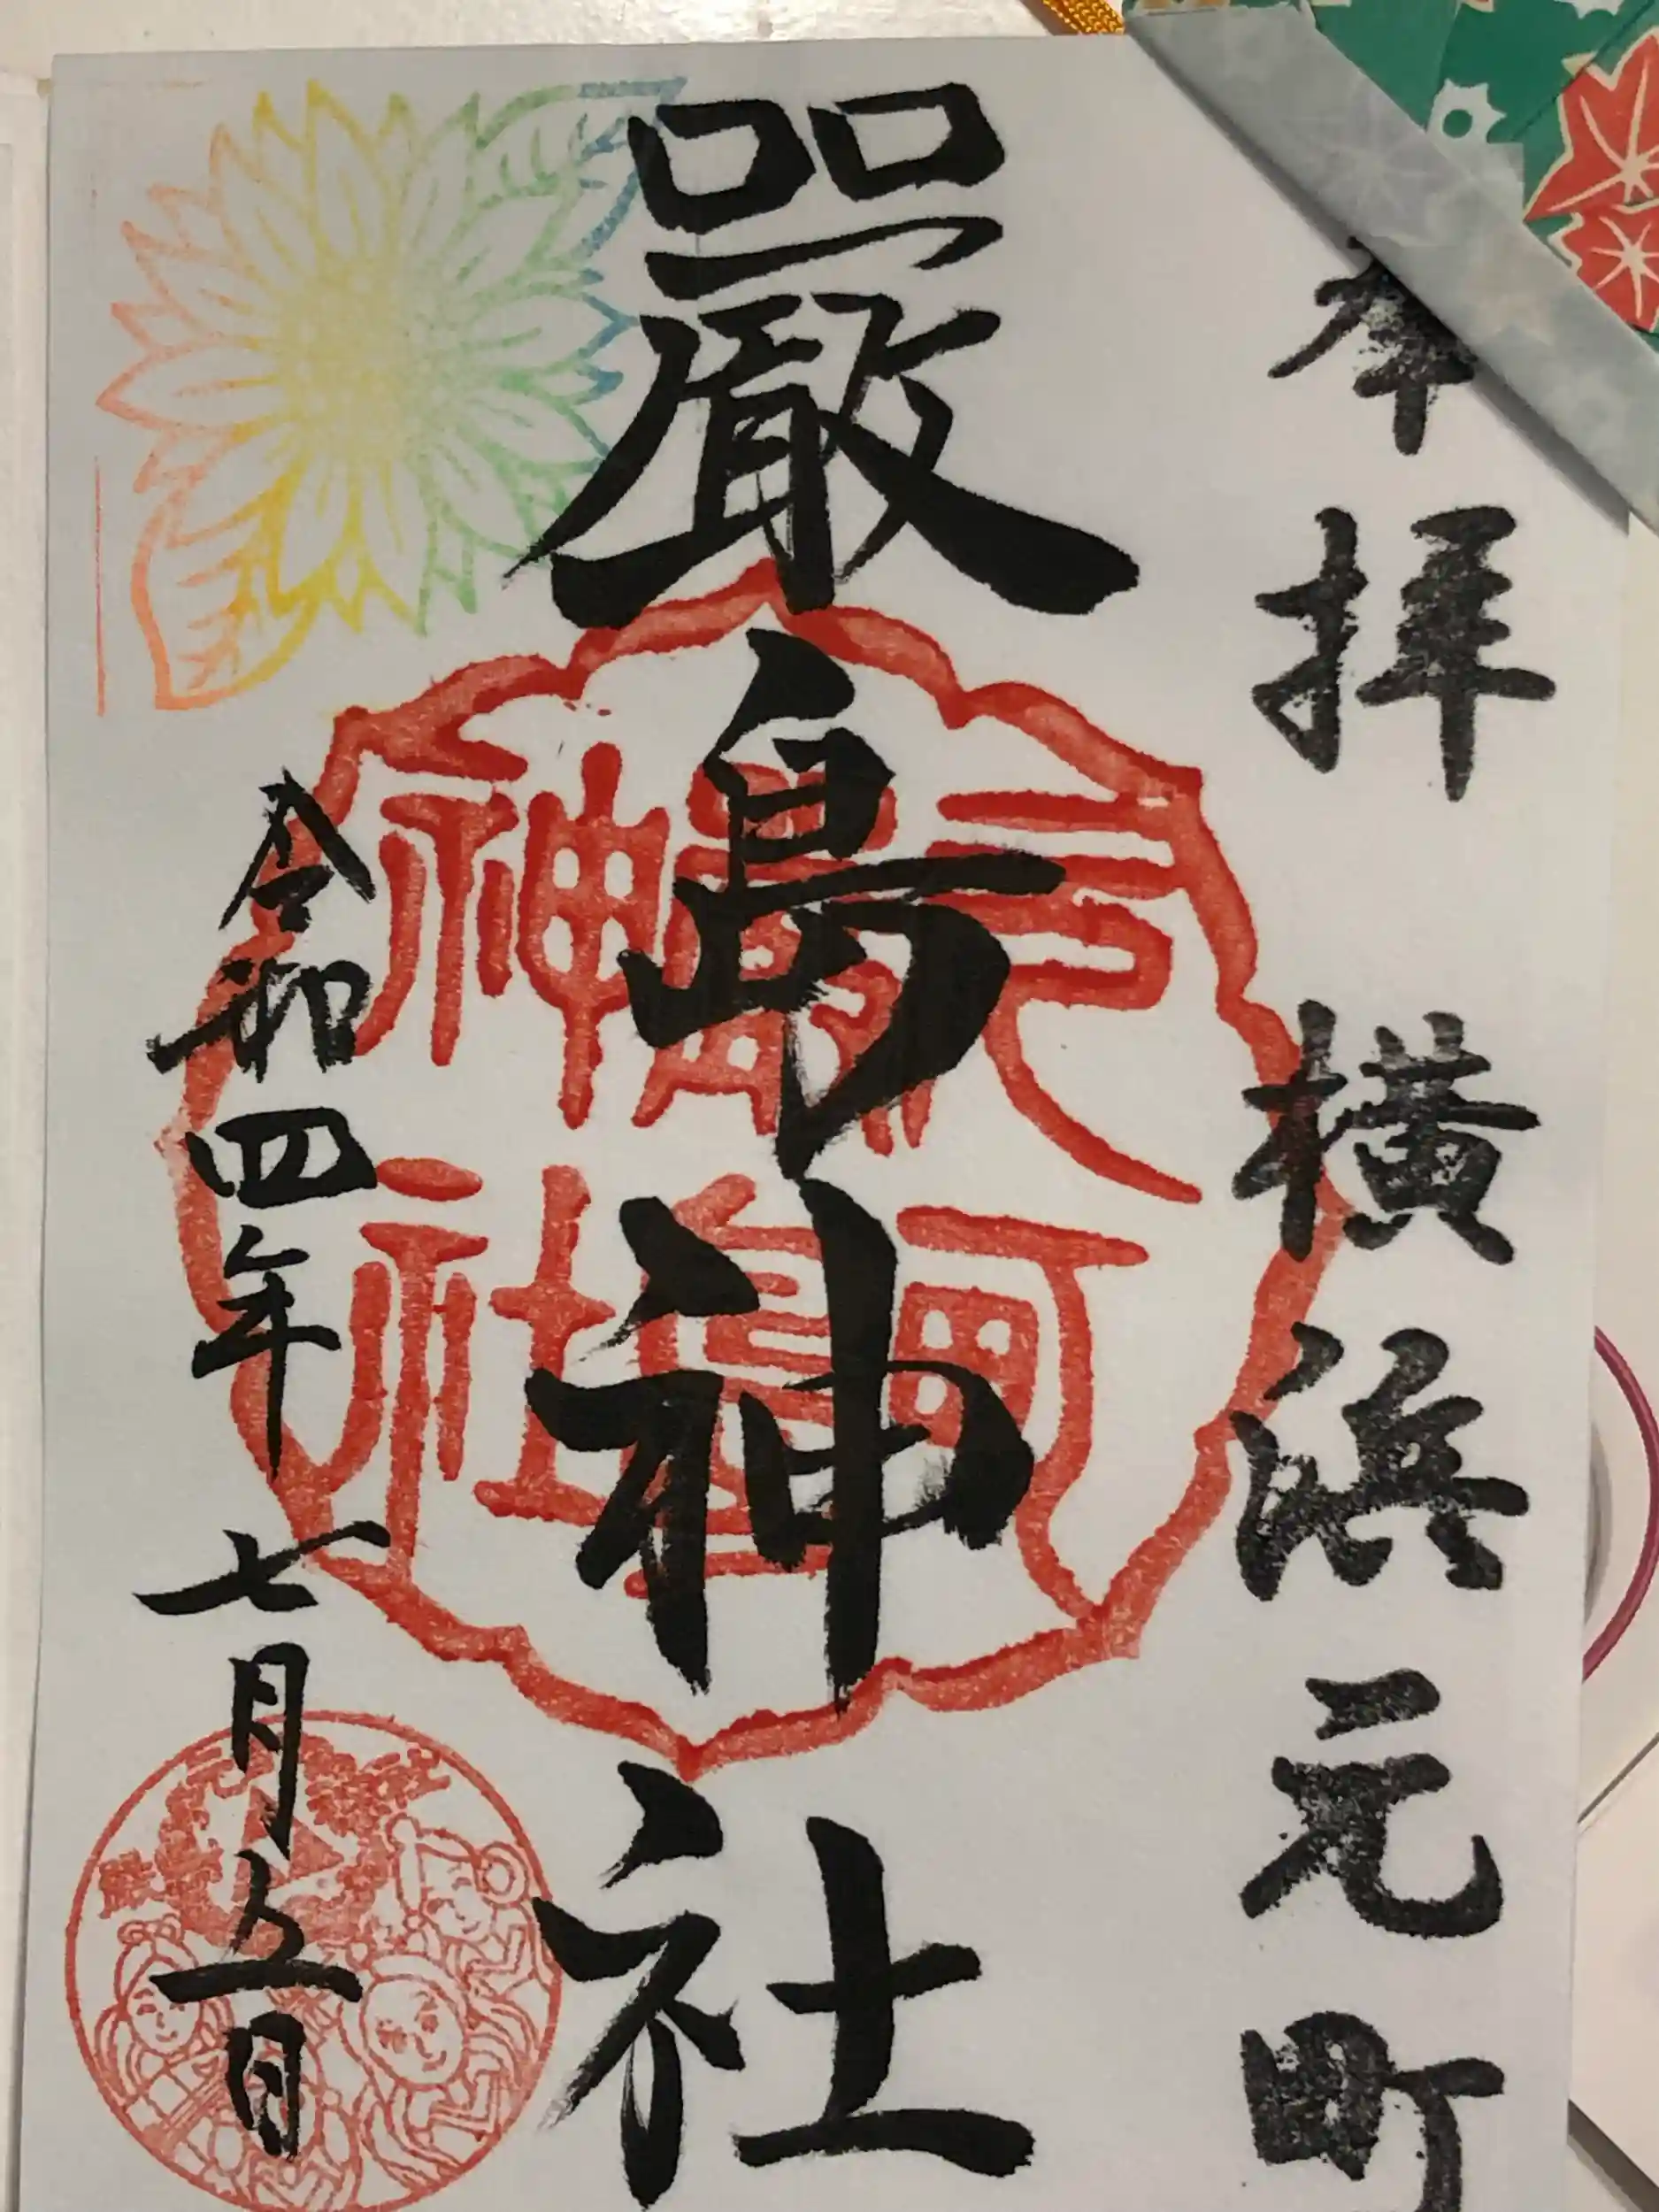 奉拝 横浜元町
嚴島神社
元町
嚴島
神社
令和四年 七月 日